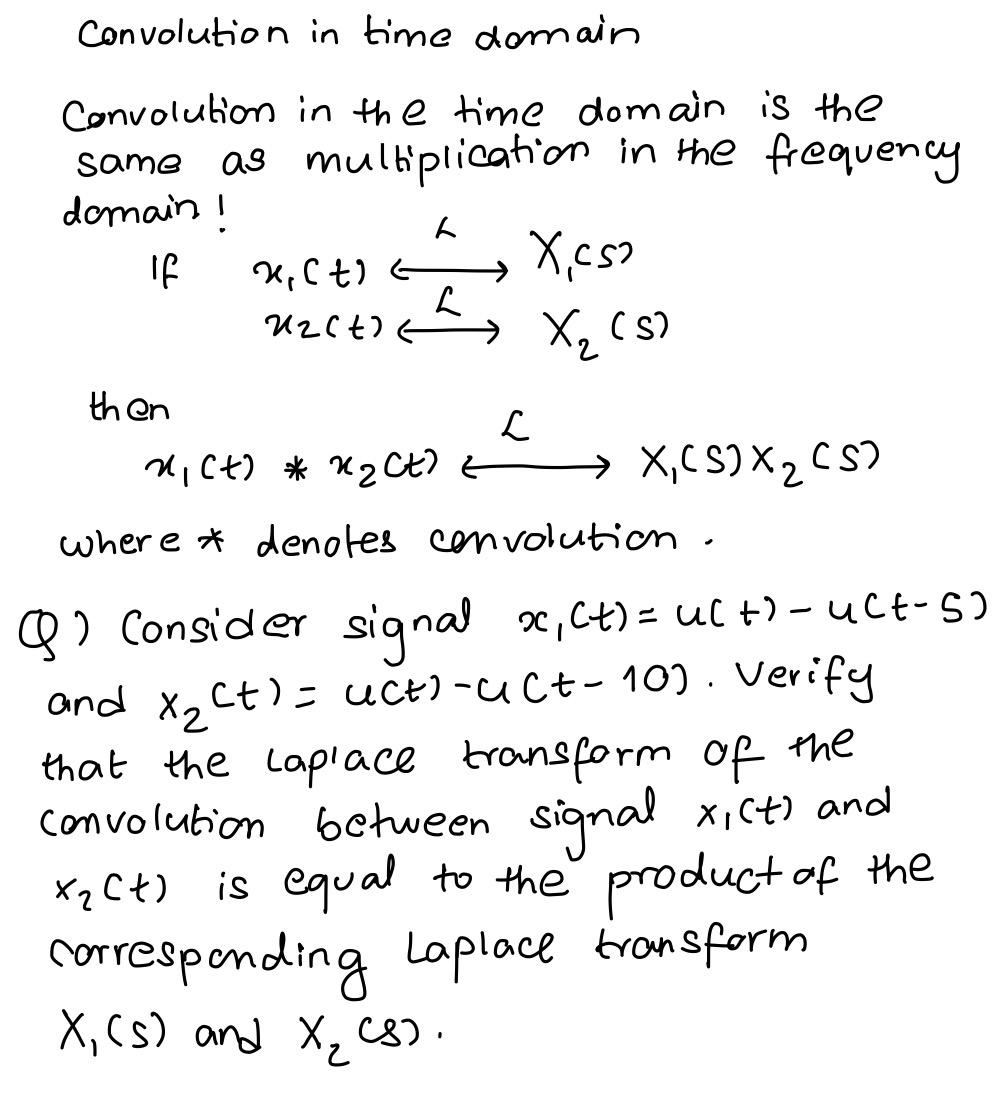 Convolution in time domain
Convolution in the time domain is the
same as multiplication in the frequency
domain!
If x₁(t) ⟷ X₁(s)
x₂(t) ⟷ X₂(s)
then
x₁(t) * x₂(t) ⟷ X₁(s)X₂(s)
where * denotes convolution.
Q) Consider signal x₁(t) = u(t) - u(t-5)
and x₂(t) = u(t) - u(t-10). Verify
that the Laplace transform of the
convolution between signal x₁(t) and
x₂(t) is equal to the product of the
corresponding Laplace transform
X₁(s) and X₂(s).